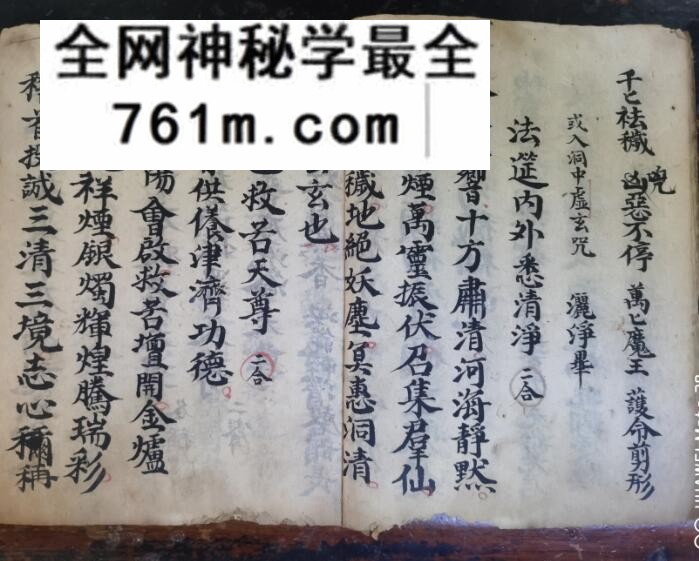 全网神秘学最全
761m.com
千匕袪穢 兇惡不停 萬匕魔王 護命剪形
咒
或入洞中虛玄咒 灑淨畢
法筵内外悉清淨 二合
響十方肅清河海靜默
煙萬靈振伏召集羣仙
穢地絕妖塵冥惠洞清
玄也
救苦天尊 二合
供養津濟功德
陽會啟救苦壇開金爐
祥煙銀燭輝煌騰瑞彩
稽首投誠三清三境志心稱稱